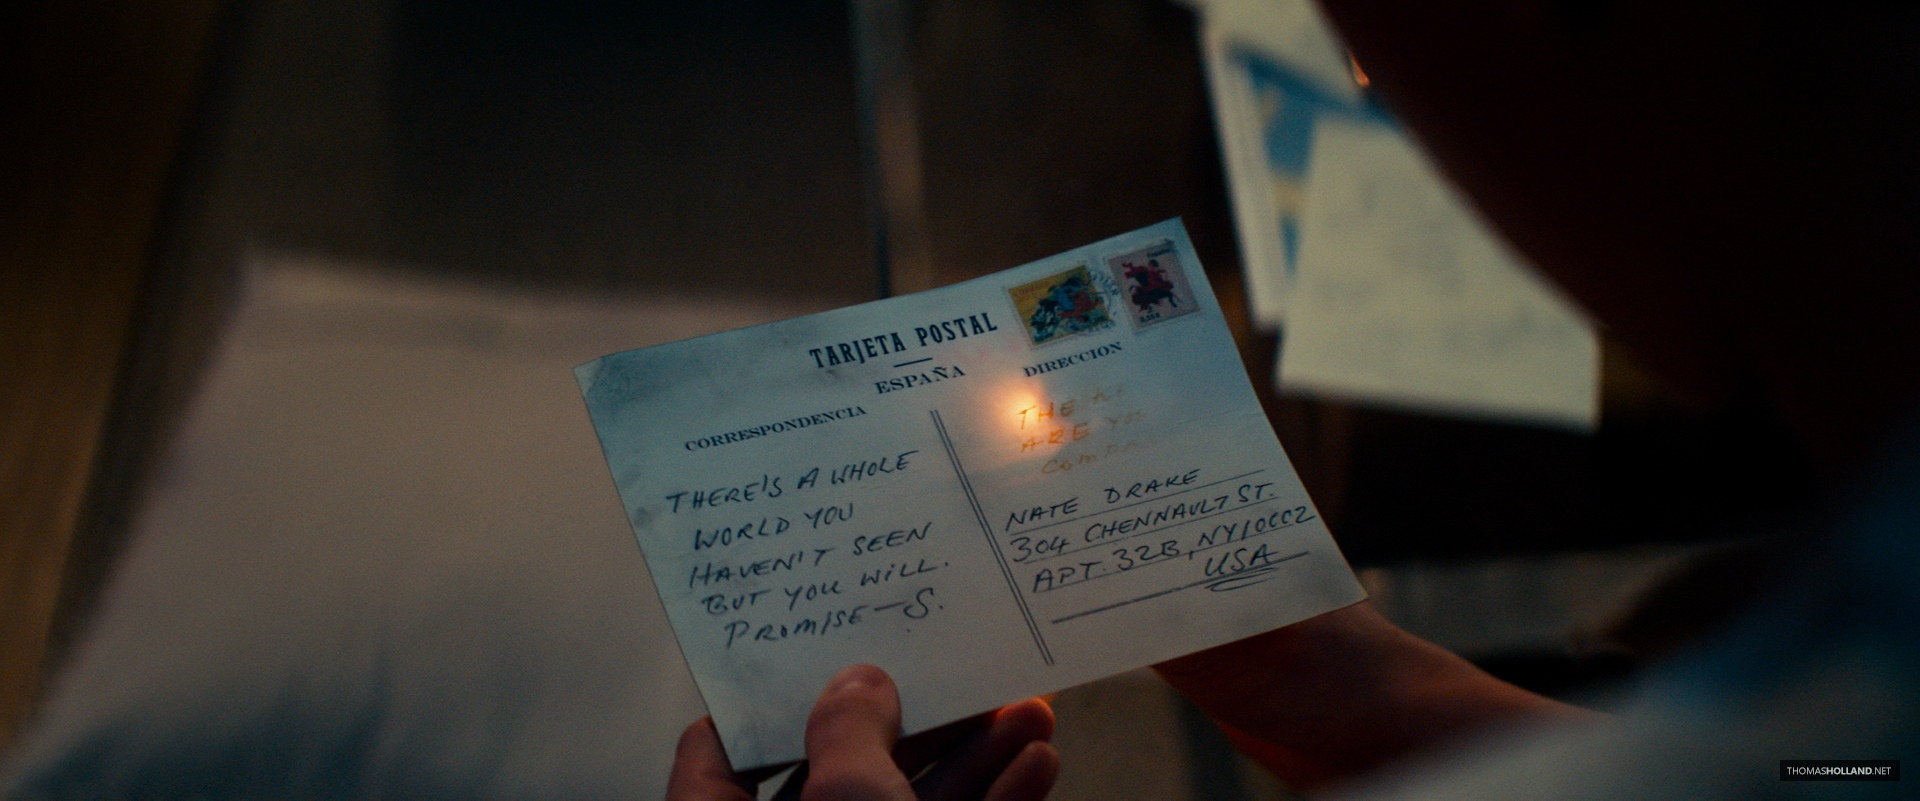 TARJETA POSTAL
ESPAÑA
CORRESPONDENCIA
DIRECCION
THERE'S A WHOLE
WORLD YOU
HAVEN'T SEEN
BUT YOU WILL.
PROMISE—S.
THE
ARE YO
COM
NATE DRAKE
304 CHENNAULT ST.
APT. 32B, NY 10002
USA
THOMASHOLLAND.NET